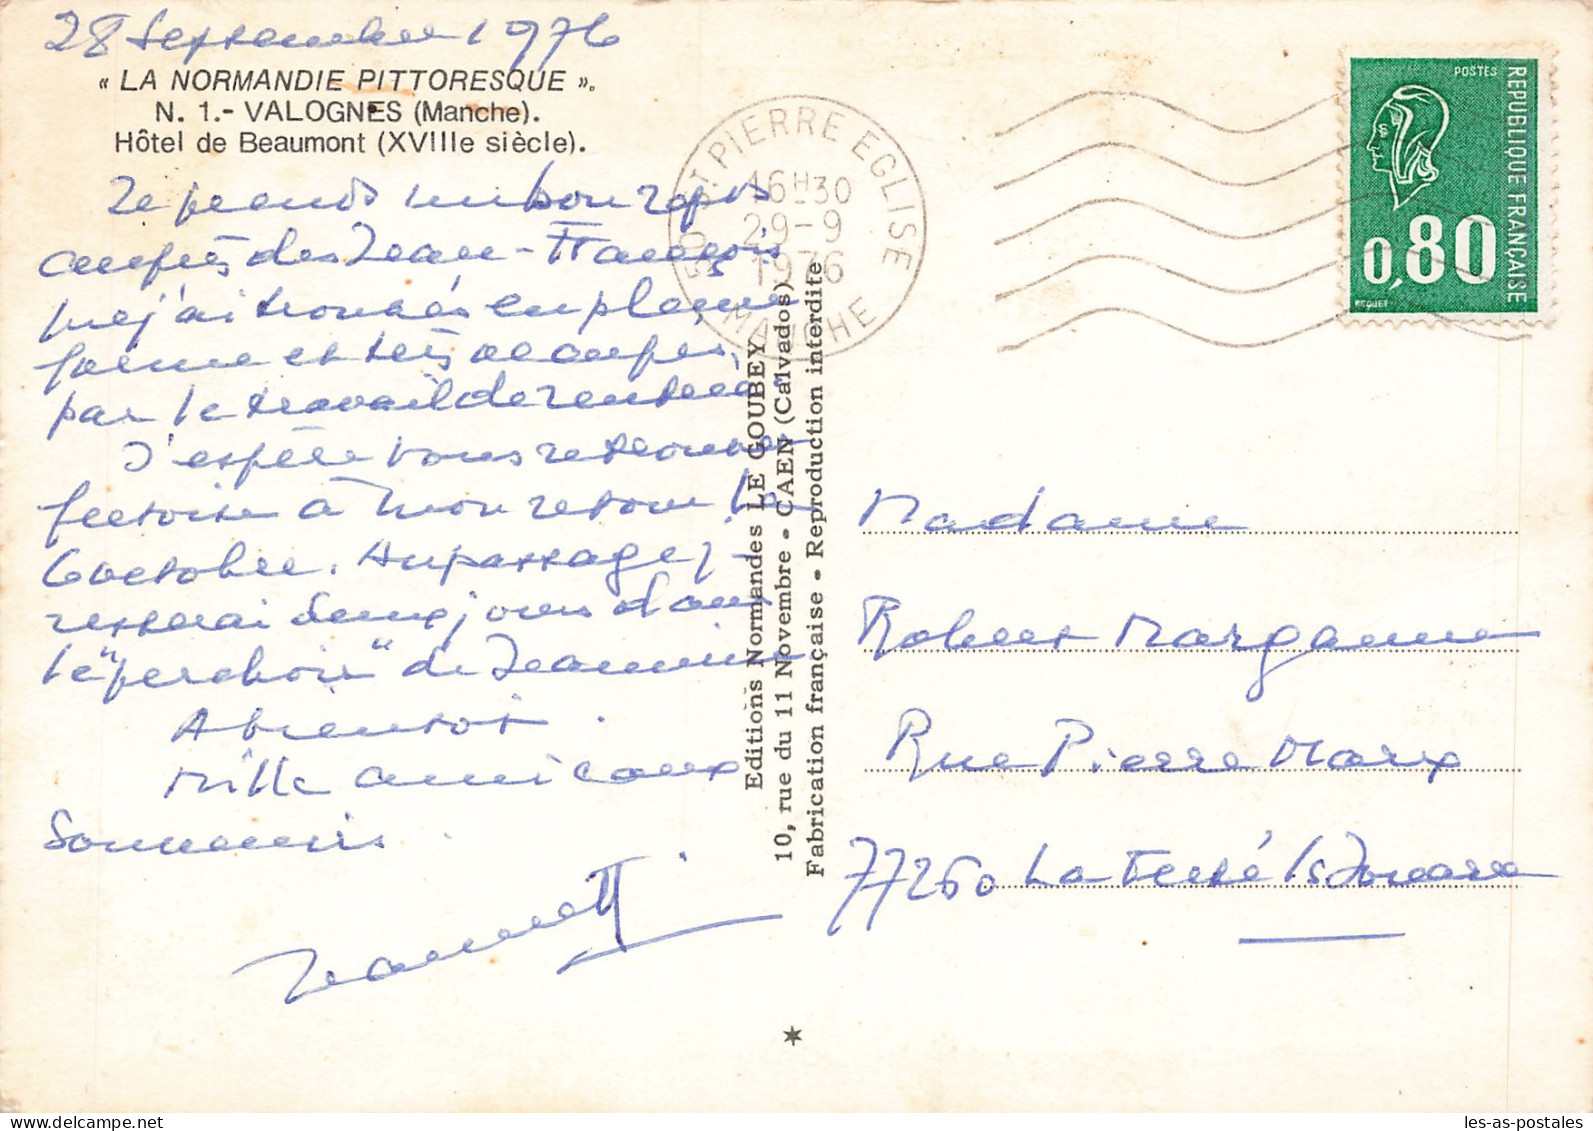 28 Septembre 1976
« LA NORMANDIE PITTORESQUE ».
N. 1.- VALOGNES (Manche).
Hôtel de Beaumont (XVIIIe siècle).
Je prends un bon repos
auprès de Jean-François
que j'ai trouvés en pleine
forme et très occupés
par le travail de rentrée.
J'espère vous retrouver
à mon retour le
6 octobre. Au passage je
resterai deux jours dans
le "perchoir" de Jeannine
A bientot.
Mille amicaux
Souvenirs
Jeannett
50 ST PIERRE EGLISE
16H30
29-9
1976
MANCHE
POSTES
REPUBLIQUE FRANÇAISE
0,80
BEQUET
Editions Normandes LE GOUBEY
10, rue du 11 Novembre - CAEN (Calvados)
Fabrication française - Reproduction interdite
Madame
Robert Marganne
Rue Pierre Marx
77260 La Ferté s/s Jouarre
les-as-postales